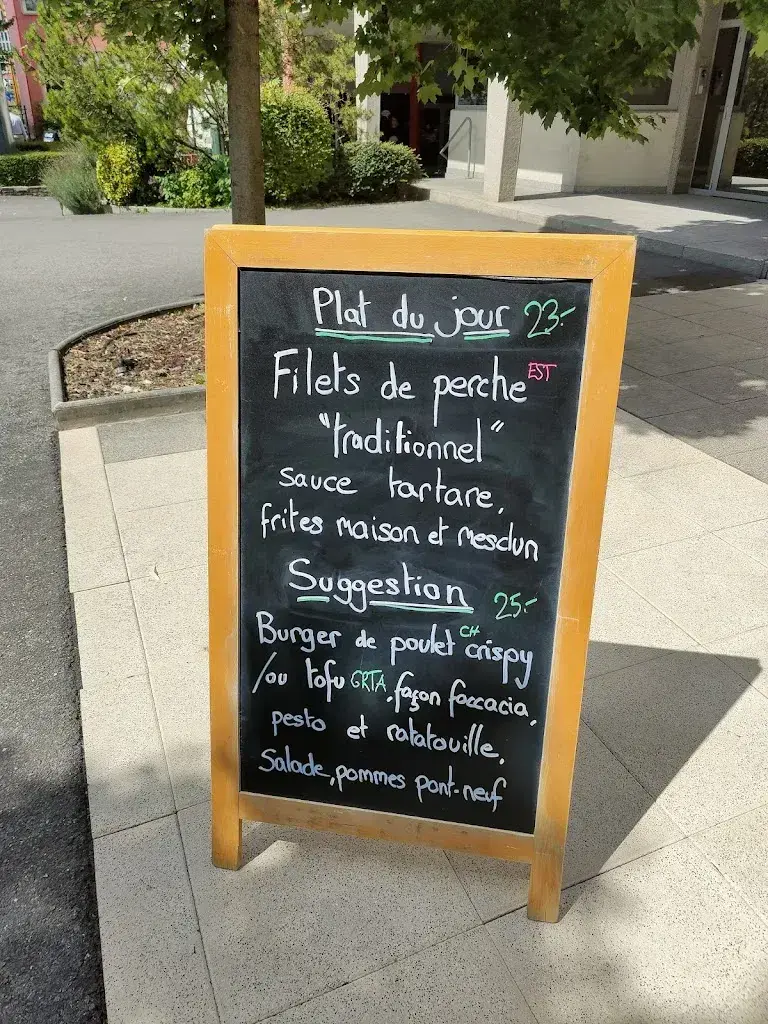 Plat du jour 23.-
Filets de perche EST
"traditionnel"
sauce tartare,
frites maison et mesclun
Suggestion 25.-
Burger de poulet CH crispy
/ou tofu GRTA, façon foccacia,
pesto et ratatouille,
Salade, pommes pont-neuf